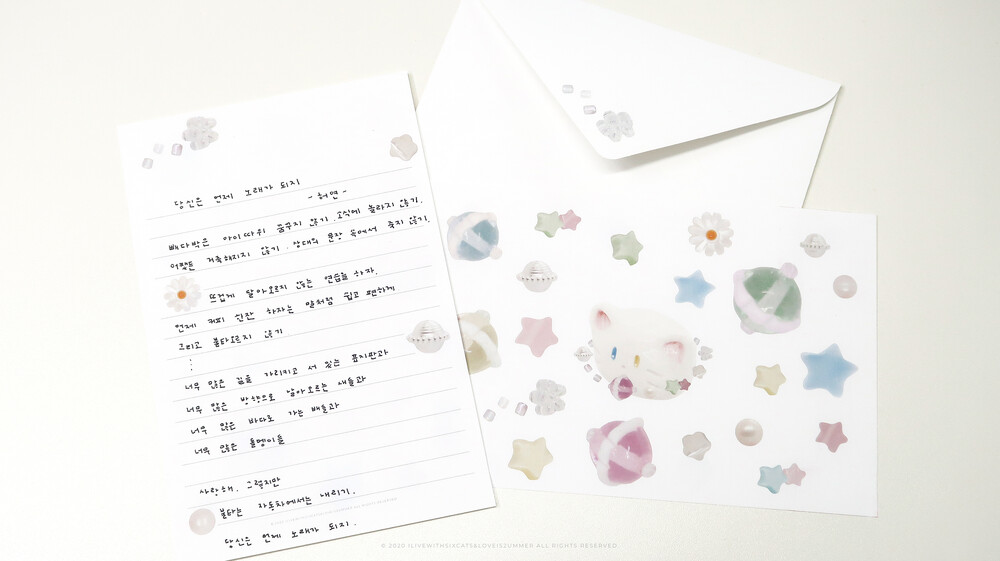 당신은 언제 노래가 되지
- 허연 -
빼다박은 아이따위 꿈꾸지 않기. 소식에 놀라지 않기.
어쨌든 거룩해지지 않기. 상대의 문장 속에서 죽지 않기.
뜨겁게 달아오르지 않는 연습을 하자.
언제 커피 한잔 하자는 말처럼 쉽고 편하게
그리고 불타오르지 않기
⋮
너무 많은 길을 가리키고 서 있는 표지판과
너무 많은 방향으로 날아오르는 새들과
너무 많은 바다로 가는 배들과
너무 많은 돌멩이들
사랑해. 그렇지만
불타는 자동차에서는 내리기.
당신은 언제 노래가 되지.
© 2020 ILIVEWITHSIXCATS&LOVEISZUMMER ALL RIGHTS RESERVED.